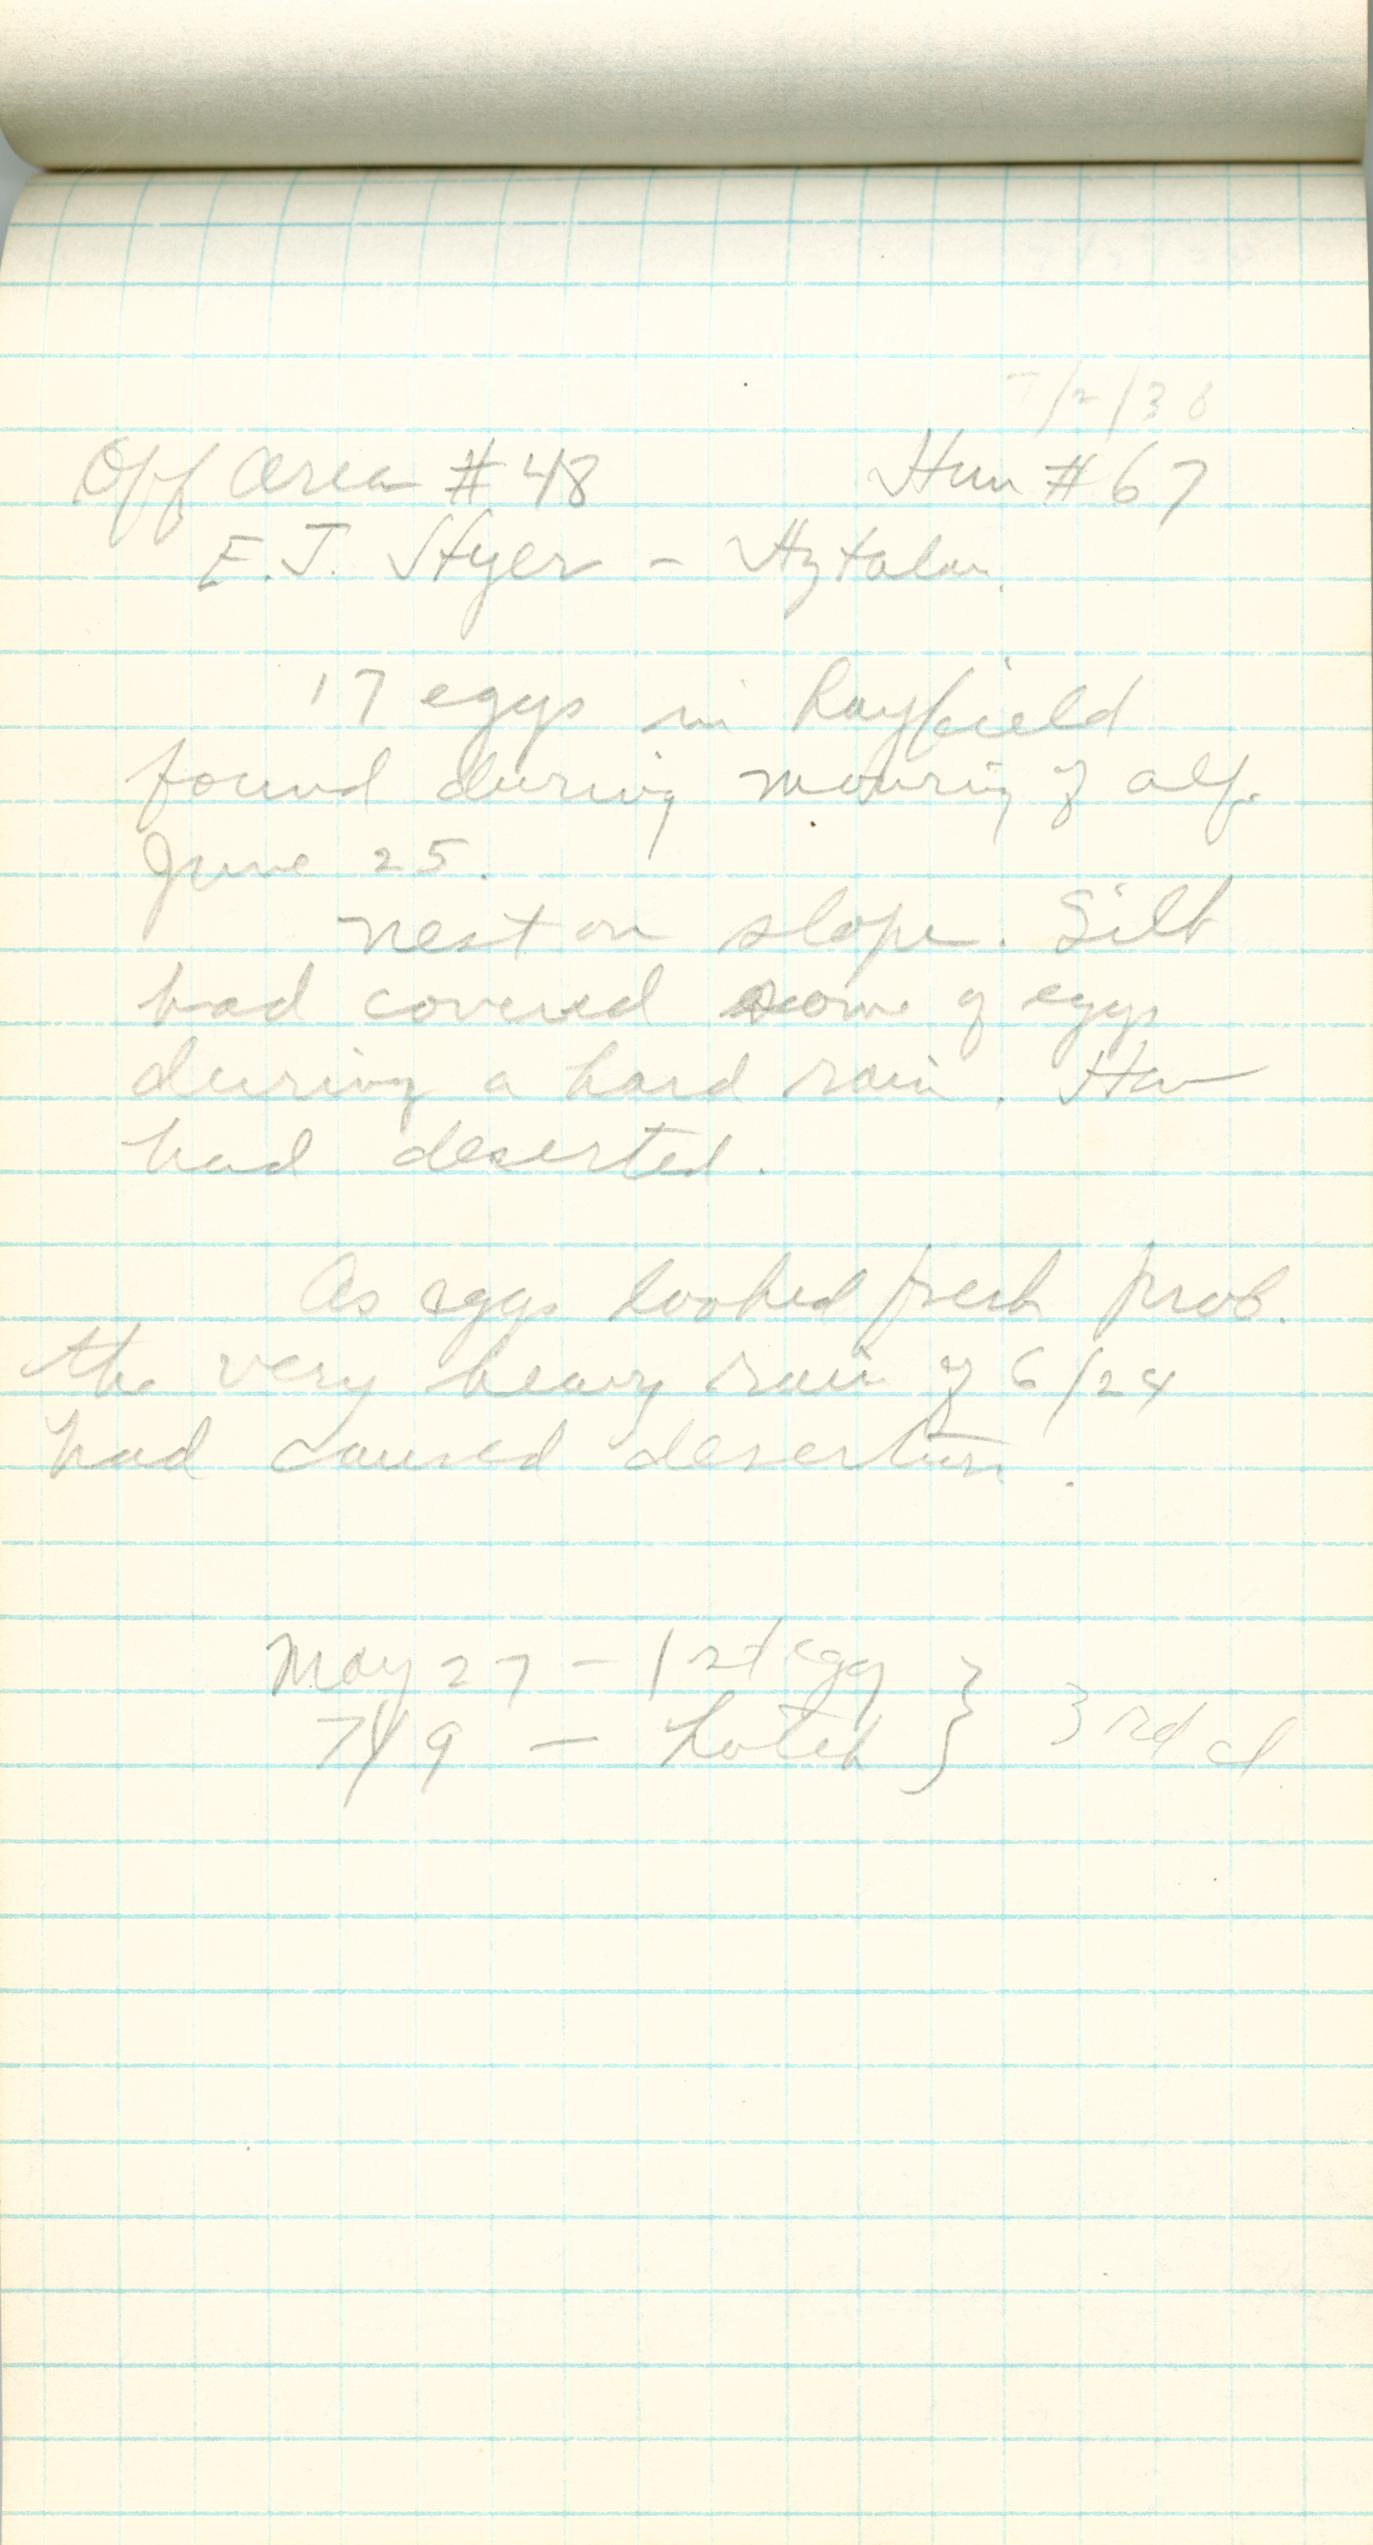 7/2/38
Off Area #48 Hun #67
E.J. Hyer - Aztalan.
17 eggs in hayfield
found during mowing of alf.
June 25.
Nest on slope. Silt
had covered some of eggs
during a hard rain. Hen
had deserted.
As eggs looked fresh prob.
the very heavy rain of 6/24
had caused desertion.
May 27 - 1st egg
7/9 - hatch } 3rd cl